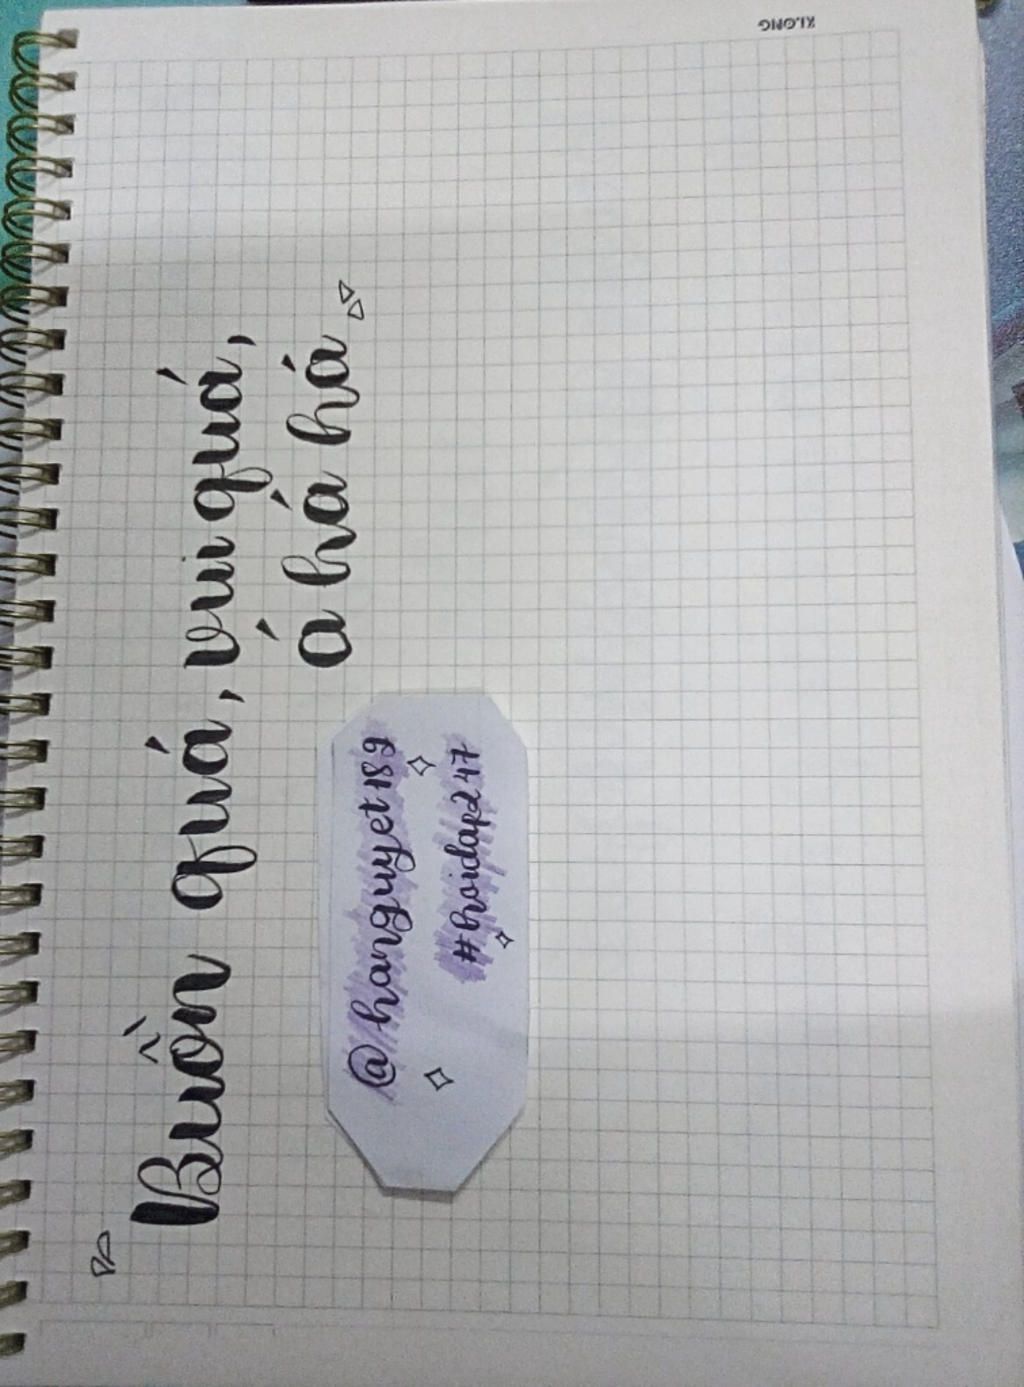 Buồn quá, vui quá,
á há há há
@hanguyet189
#hoidap247
KLONG